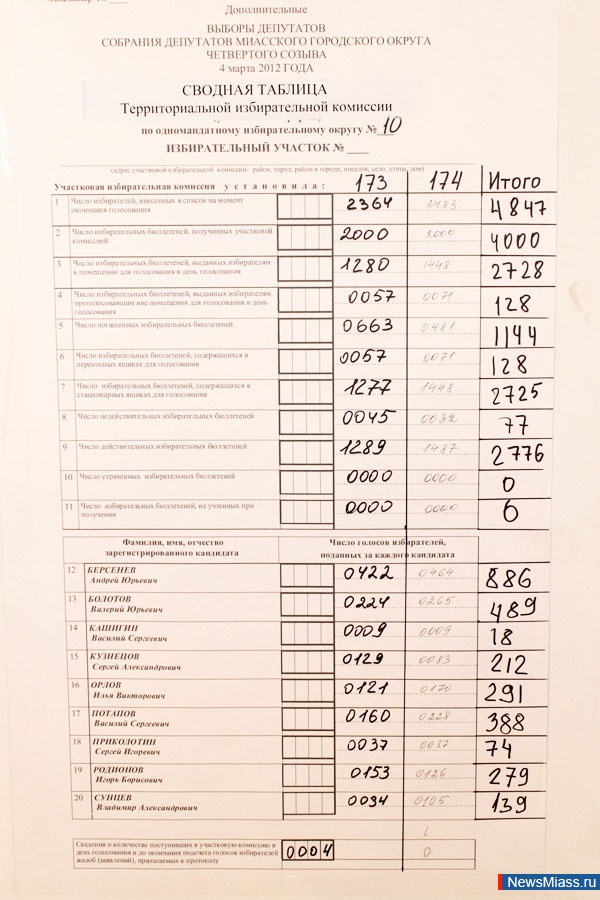 Дополнительные
ВЫБОРЫ ДЕПУТАТОВ
СОБРАНИЯ ДЕПУТАТОВ МИАССКОГО ГОРОДСКОГО ОКРУГА
ЧЕТВЕРТОГО СОЗЫВА
4 марта 2012 ГОДА
СВОДНАЯ ТАБЛИЦА
Территориальной избирательной комиссии
по одномандатному избирательному округу № 10
ИЗБИРАТЕЛЬНЫЙ УЧАСТОК № ____
(адрес участковой избирательной комиссии- район, город, район в городе, поселок, село, улица, дом)
Участковая избирательная комиссия установила: 173 174 Итого
1 Число избирателей, внесенных в список на момент окончания голосования 2364 2483 4847
2 Число избирательных бюллетеней, полученных участковой комиссией 2000 2000 4000
3 Число избирательных бюллетеней, выданных избирателям в помещении для голосования в день голосования 1280 1448 2728
4 Число избирательных бюллетеней, выданных избирателям, проголосовавшим вне помещения для голосования в день голосования 0057 0071 128
5 Число погашенных избирательных бюллетеней 0663 0481 1144
6 Число избирательных бюллетеней, содержащихся в переносных ящиках для голосования 0057 0071 128
7 Число избирательных бюллетеней, содержащихся в стационарных ящиках для голосования 1277 1448 2725
8 Число недействительных избирательных бюллетеней 0045 0032 77
9 Число действительных избирательных бюллетеней 1289 1487 2776
10 Число утраченных избирательных бюллетеней 0000 0000 0
11 Число избирательных бюллетеней, не учтенных при получении 0000 0000 0
Фамилия, имя, отчество зарегистрированного кандидата Число голосов избирателей, поданных за каждого кандидата
12 БЕРСЕНЕВ Андрей Юрьевич 0422 0464 886
13 БОЛОТОВ Валерий Юрьевич 0224 0265 489
14 КАШИГИН Василий Сергеевич 0009 0009 18
15 КУЗНЕЦОВ Сергей Александрович 0129 0083 212
16 ОРЛОВ Илья Викторович 0121 0170 291
17 ПОТАПОВ Василий Сергеевич 0160 0228 388
18 ПРИКОЛОТИН Сергей Игоревич 0037 0037 74
19 РОДИОНОВ Игорь Борисович 0153 0126 279
20 СУНЦЕВ Владимир Александрович 0034 0105 139
Сведения о количестве поступивших в участковую комиссию в день голосования и до окончания подсчета голосов избирателей жалоб (заявлений), прилагаемых к протоколу 0004 0
NewsMiass.ru